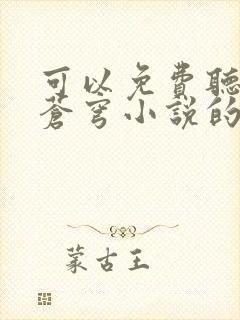 可以免費聽
蒼穹小説的
蒙古王